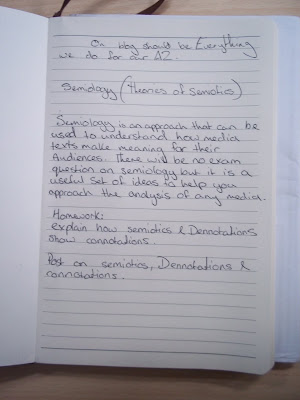 On blog should be Everything
we do for our A2.
Semiology (theories of semiotics)
Semiology is an approach that can be
used to understand how media
texts make meaning for their
Audiences. There will be no exam
question on semiology but it is a
useful set of ideas to help you
approach the analysis of any media.
Homework:
explain how semiotics & Dennotations
show connotations.
Post on semiotics, Dennotations &
connotations.